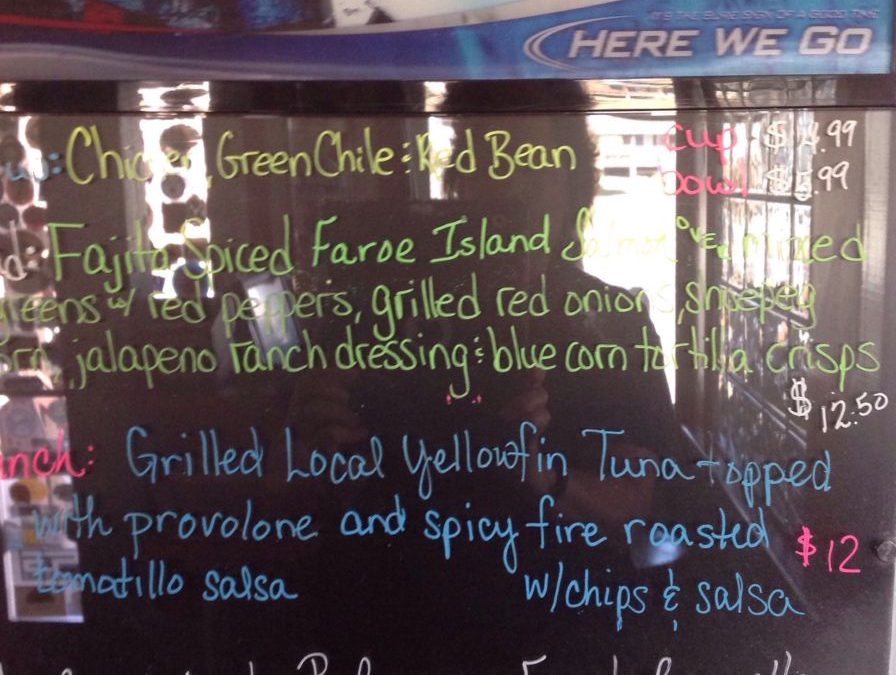 IT'S THE SURE SIGN OF A GOOD TIME
HERE WE GO
Chicken, Green Chile & Red Bean cup $4.99
bowl $5.99
Fajita Spiced Faroe Island Salmon over mixed
greens w/ red peppers, grilled red onions, snopeg
jalapeno ranch dressing & blue corn tortilla crisps
$12.50
Grilled Local Yellowfin Tuna topped
with provolone and spicy fire roasted $12
tomatillo salsa w/chips & salsa